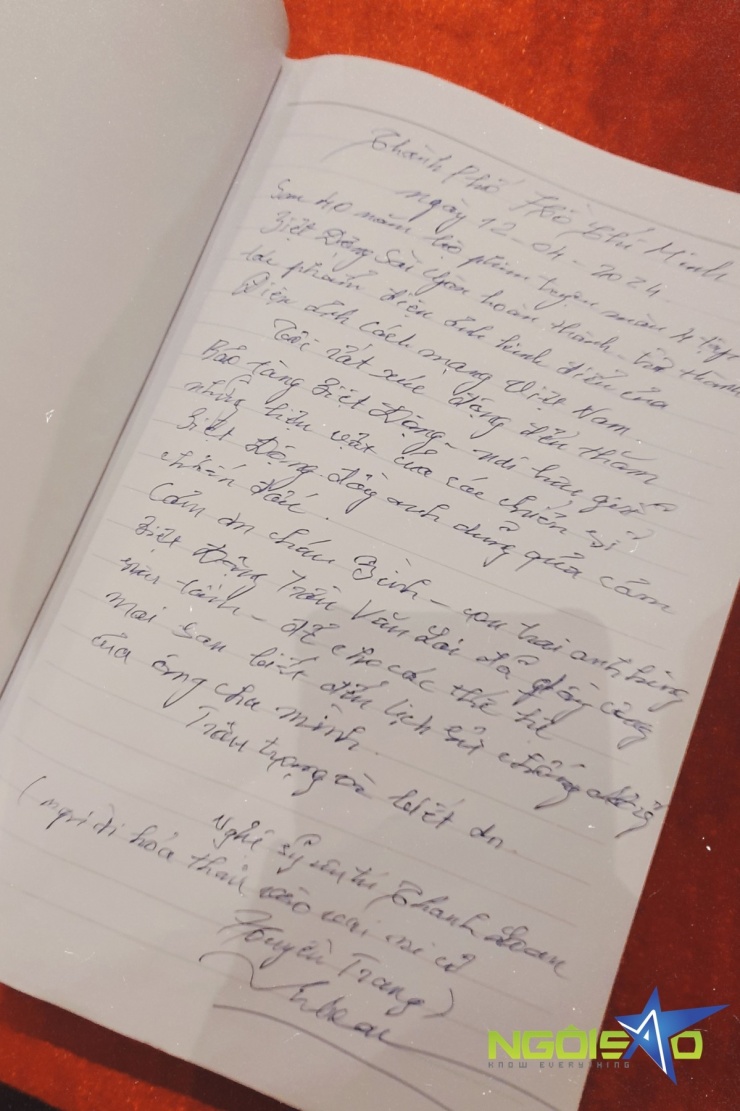 Thành Phố Hồ Chí Minh
ngày 12-04-2024.
Sau 40 năm bộ phim truyện màn 4 tập
Biệt Động Sài Gòn hoàn thành - trở thành
tác phẩm điện ảnh kinh điển của
Điện ảnh Cách mạng Việt Nam
Tôi rất xúc động đến thăm
Bảo tàng Biệt Động - nơi lưu giữ
những hiện vật của các chiến sĩ
Biệt Động đầy anh dũng quả cảm
chiến đấu.
Cám ơn cháu Bình - con trai anh hùng
Biệt Động Trần Văn Lai đã
- để cho các thế hệ
mai sau biết đến lịch sử
của ông cha mình.
Trân trọng và biết ơn.
Nghệ sỹ ưu tú Thanh Loan
(người hóa thân vào vai ni cô
Huyền Trang)
NGÔISAO
KNOW EVERYTHING